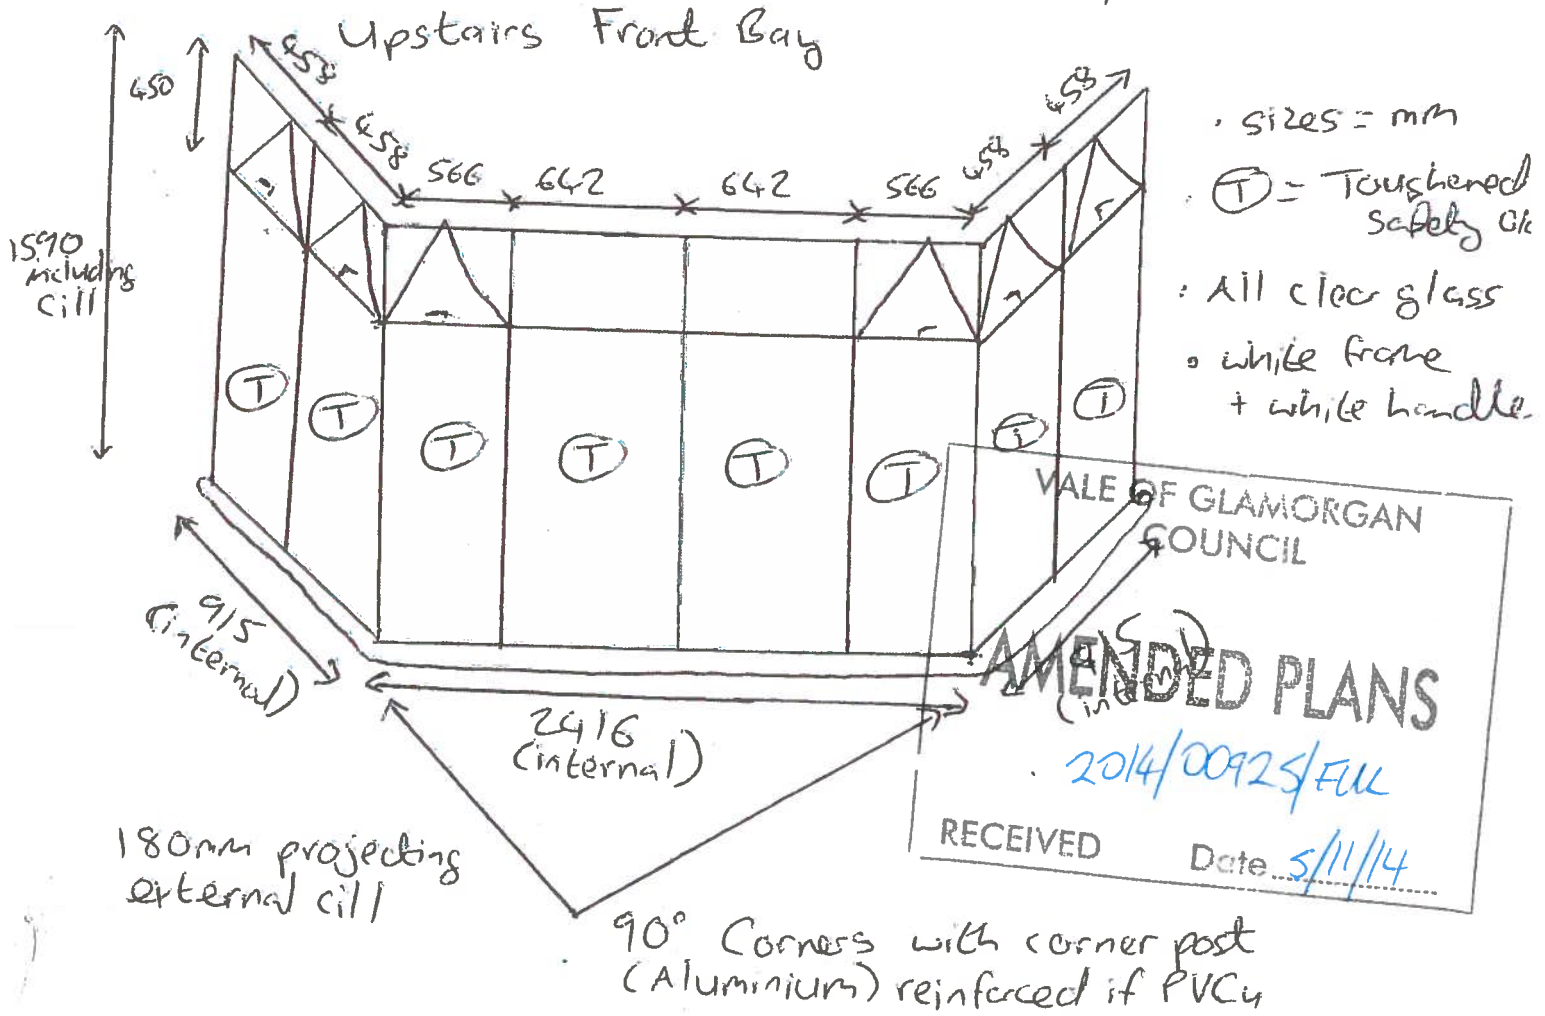 Upstairs Front Bay
450
458
458
566
642
642
566
458
458
1590
including
Cill
• sizes = mm
• T = Toughened
Safety
• All clear glass
• white frame
+ white handle
T
T
T
T
T
T
T
T
915
(internal)
2416
(internal)
180mm projecting
external cill
90° Corners with corner post
(Aluminium) reinforced if PVCu
VALE OF GLAMORGAN
COUNCIL
AMENDED PLANS
2014/00925/FUL
RECEIVED
Date 5/11/14